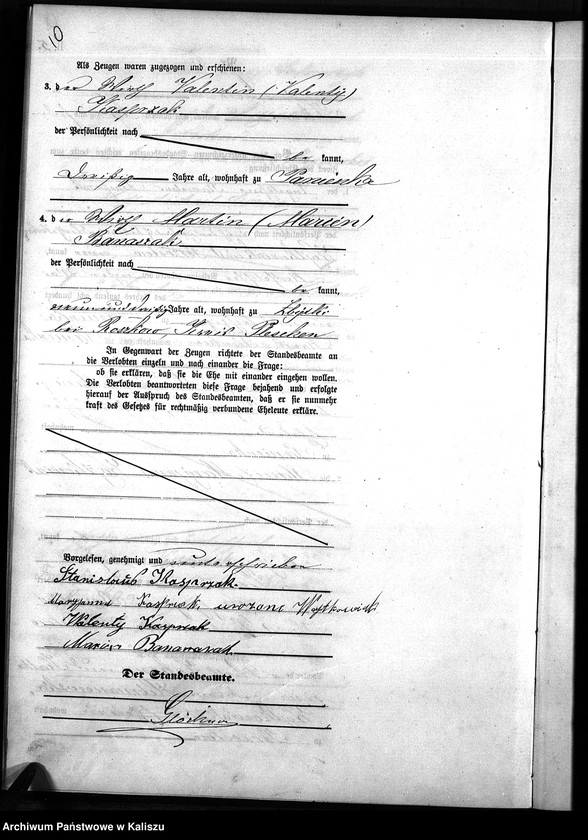 10
Als Zeugen waren zugezogen und erschienen:
3. der Wirth Valentin (Valenty)
Kasprzak
der Persönlichkeit nach
be kannt,
dreißig Jahre alt, wohnhaft zu Panienka
4. der Wirth Martin (Marcin)
Banaszak
der Persönlichkeit nach
be kannt,
neununddreißig Jahre alt, wohnhaft zu
bei Roszkow Kreis Pleschen
In Gegenwart der Zeugen richtete der Standesbeamte an
die Verlobten einzeln und nach einander die Frage:
ob sie erklären, daß sie die Ehe mit einander eingehen wollen.
Die Verlobten beantworteten diese Frage bejahend und erfolgte
hierauf der Ausspruch des Standesbeamten, daß er sie nunmehr
kraft des Gesetzes für rechtmäßig verbundene Eheleute erkläre.
Vorgelesen, genehmigt und unterschrieben
Stanisław Kasprzak
Maryanna urozono
Valenty Kasprzak
Marcin Banaszak
Der Standesbeamte.
Archiwum Państwowe w Kaliszu